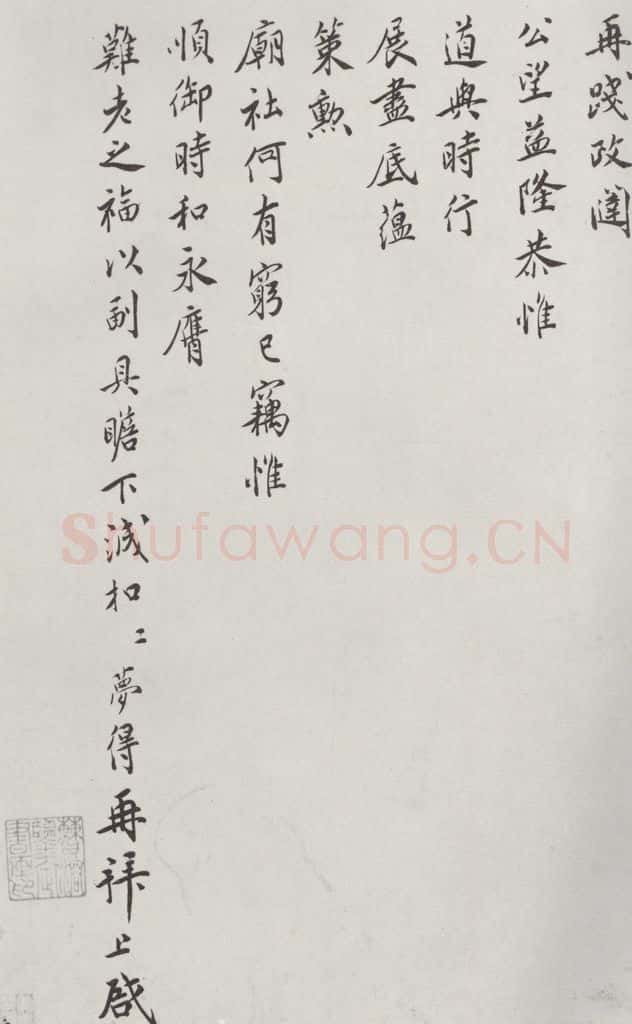 再踐政閫
公望益隆恭惟
道與時行
展盡底蘊
策勲
廟社何有窮已竊惟
順御時和永膺
難老之福以副具瞻下誠扣〻夢得再拜上啟
Shufawang.CN